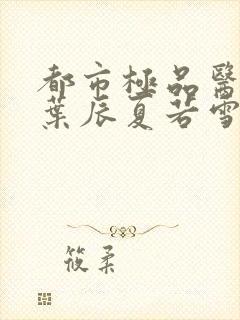 都市極品醫
葉辰夏若雪
筱柔